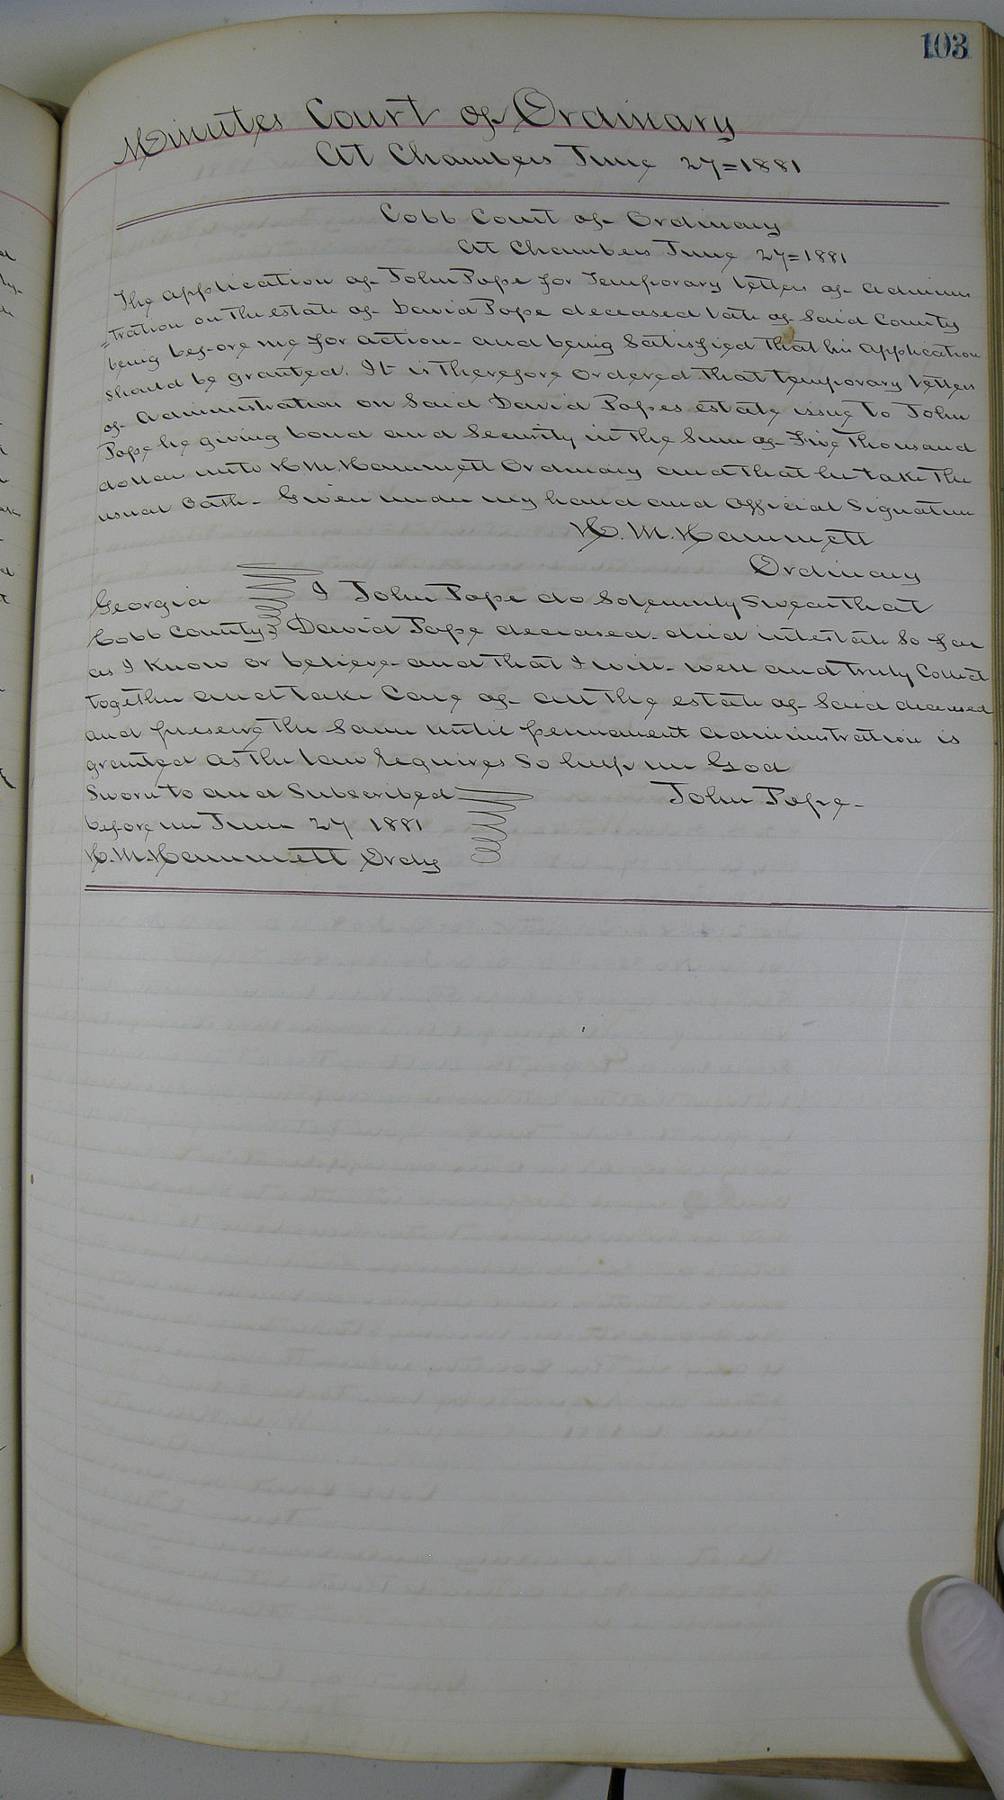 103
Minutes Court of Ordinary
At Chambers June 27=1881
Cobb Court of Ordinary
At Chambers June 27=1881
The application of John Pope for Temporary letters of adminis
=tration on the estate of David Pope deceased late of said County
being before me for action - and being satisfied that his application
should be granted. It is therefore ordered that temporary letters
of administration on said David Popes estate issue to John
Pope he giving bond and security in the sum of Five Thousand
dollars unto H. M. Hammett Ordinary and that he take the
usual oath - Given under my hand and official signature
H. M. Hammett
Ordinary
Georgia I John Pope do solemnly swear that
Cobb County } David Pope deceased - died intestate so far
as I know or believe - and that I will - well and truly collect
together and take care of - all the estate of said deceased
and preserve the same until permanent administration is
granted as the law requires so help me God
Sworn to and subscribed John Pope -
before me June 27 1881
H. M. Hammett Ordy